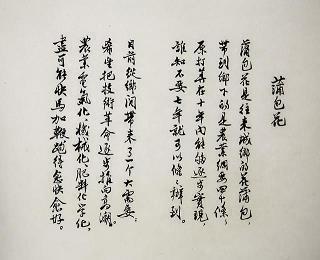 蒲包花
蒲包花是往来城乡的花蒲包,
带到乡下的是农业纲要四十条;
原打算在十年内能够逐步实现,
谁知不要七年就可以条条办到。
目前从乡间带来了一个大需要:
希望把技术革命逐步推向高潮。
农业电气化、机械化、肥料化学化,
尽可能快马加鞭跑得愈快愈好。